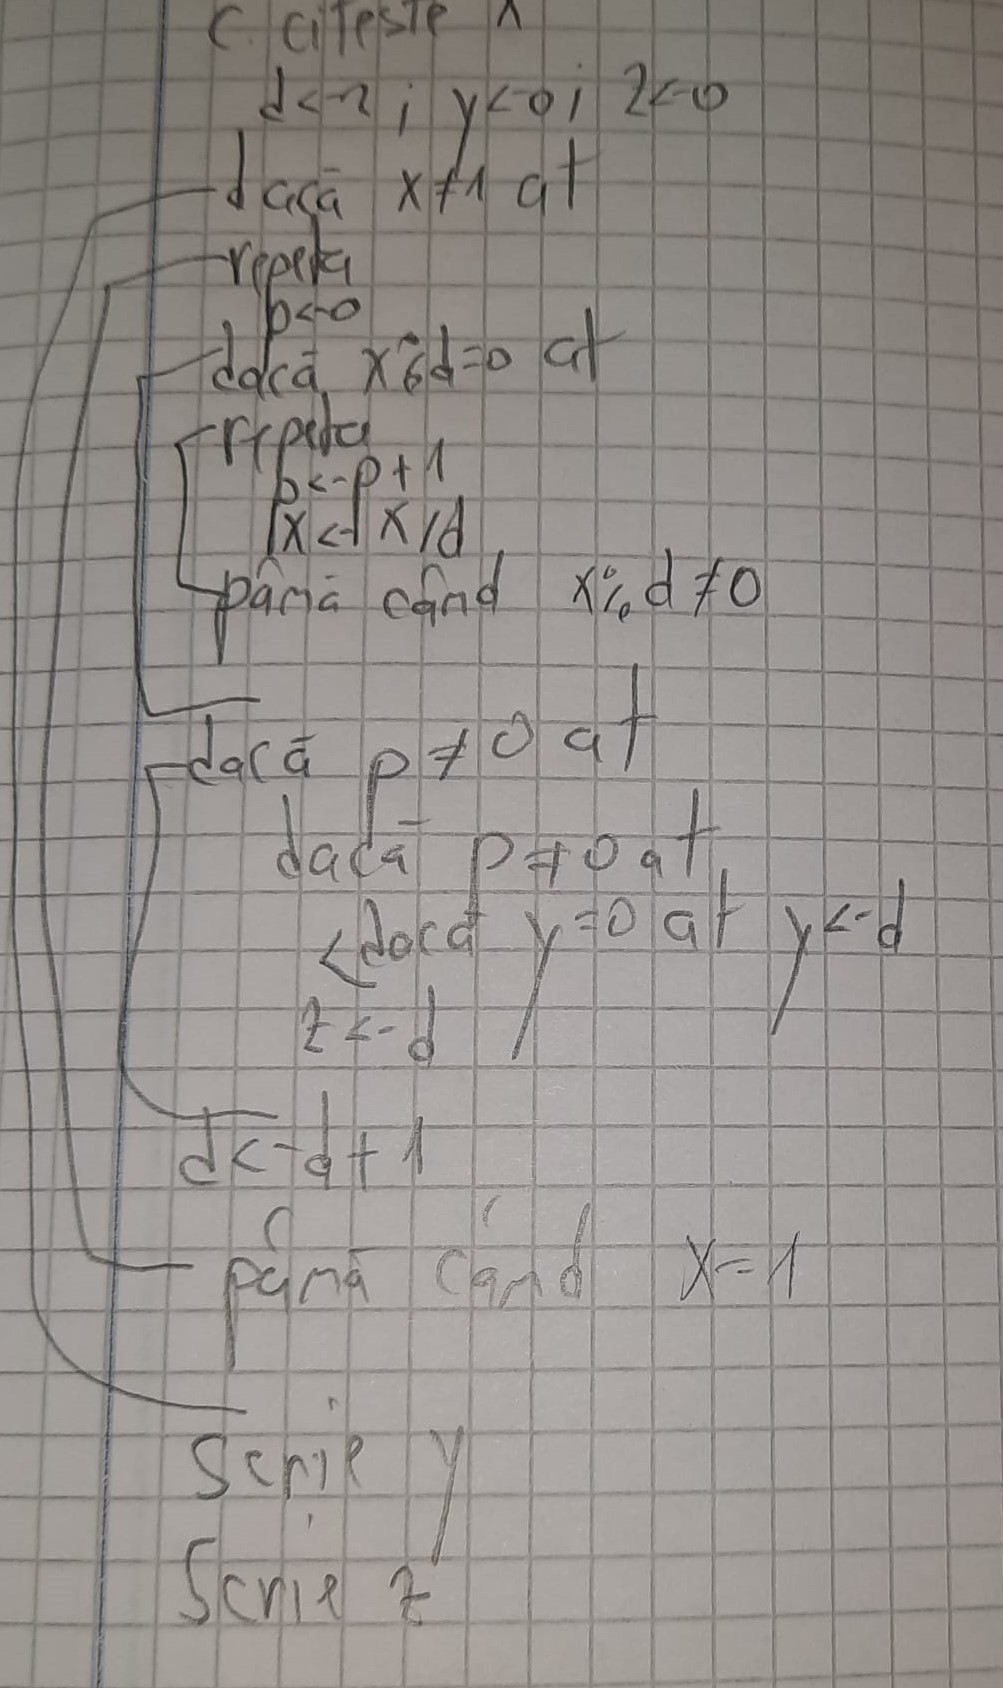 c. citește x
d<-2; y<-0; z<-0
dacă x≠1 at
repeta
p<-0
dacă x%d=0 at
repeta
p<-p+1
x<-x/d
până când x%d≠0
dacă p≠0 at
dacă p≠0 at
dacă y=0 at y<-d
z<-d
d<-d+1
până când x=1
Scrie y
Scrie z